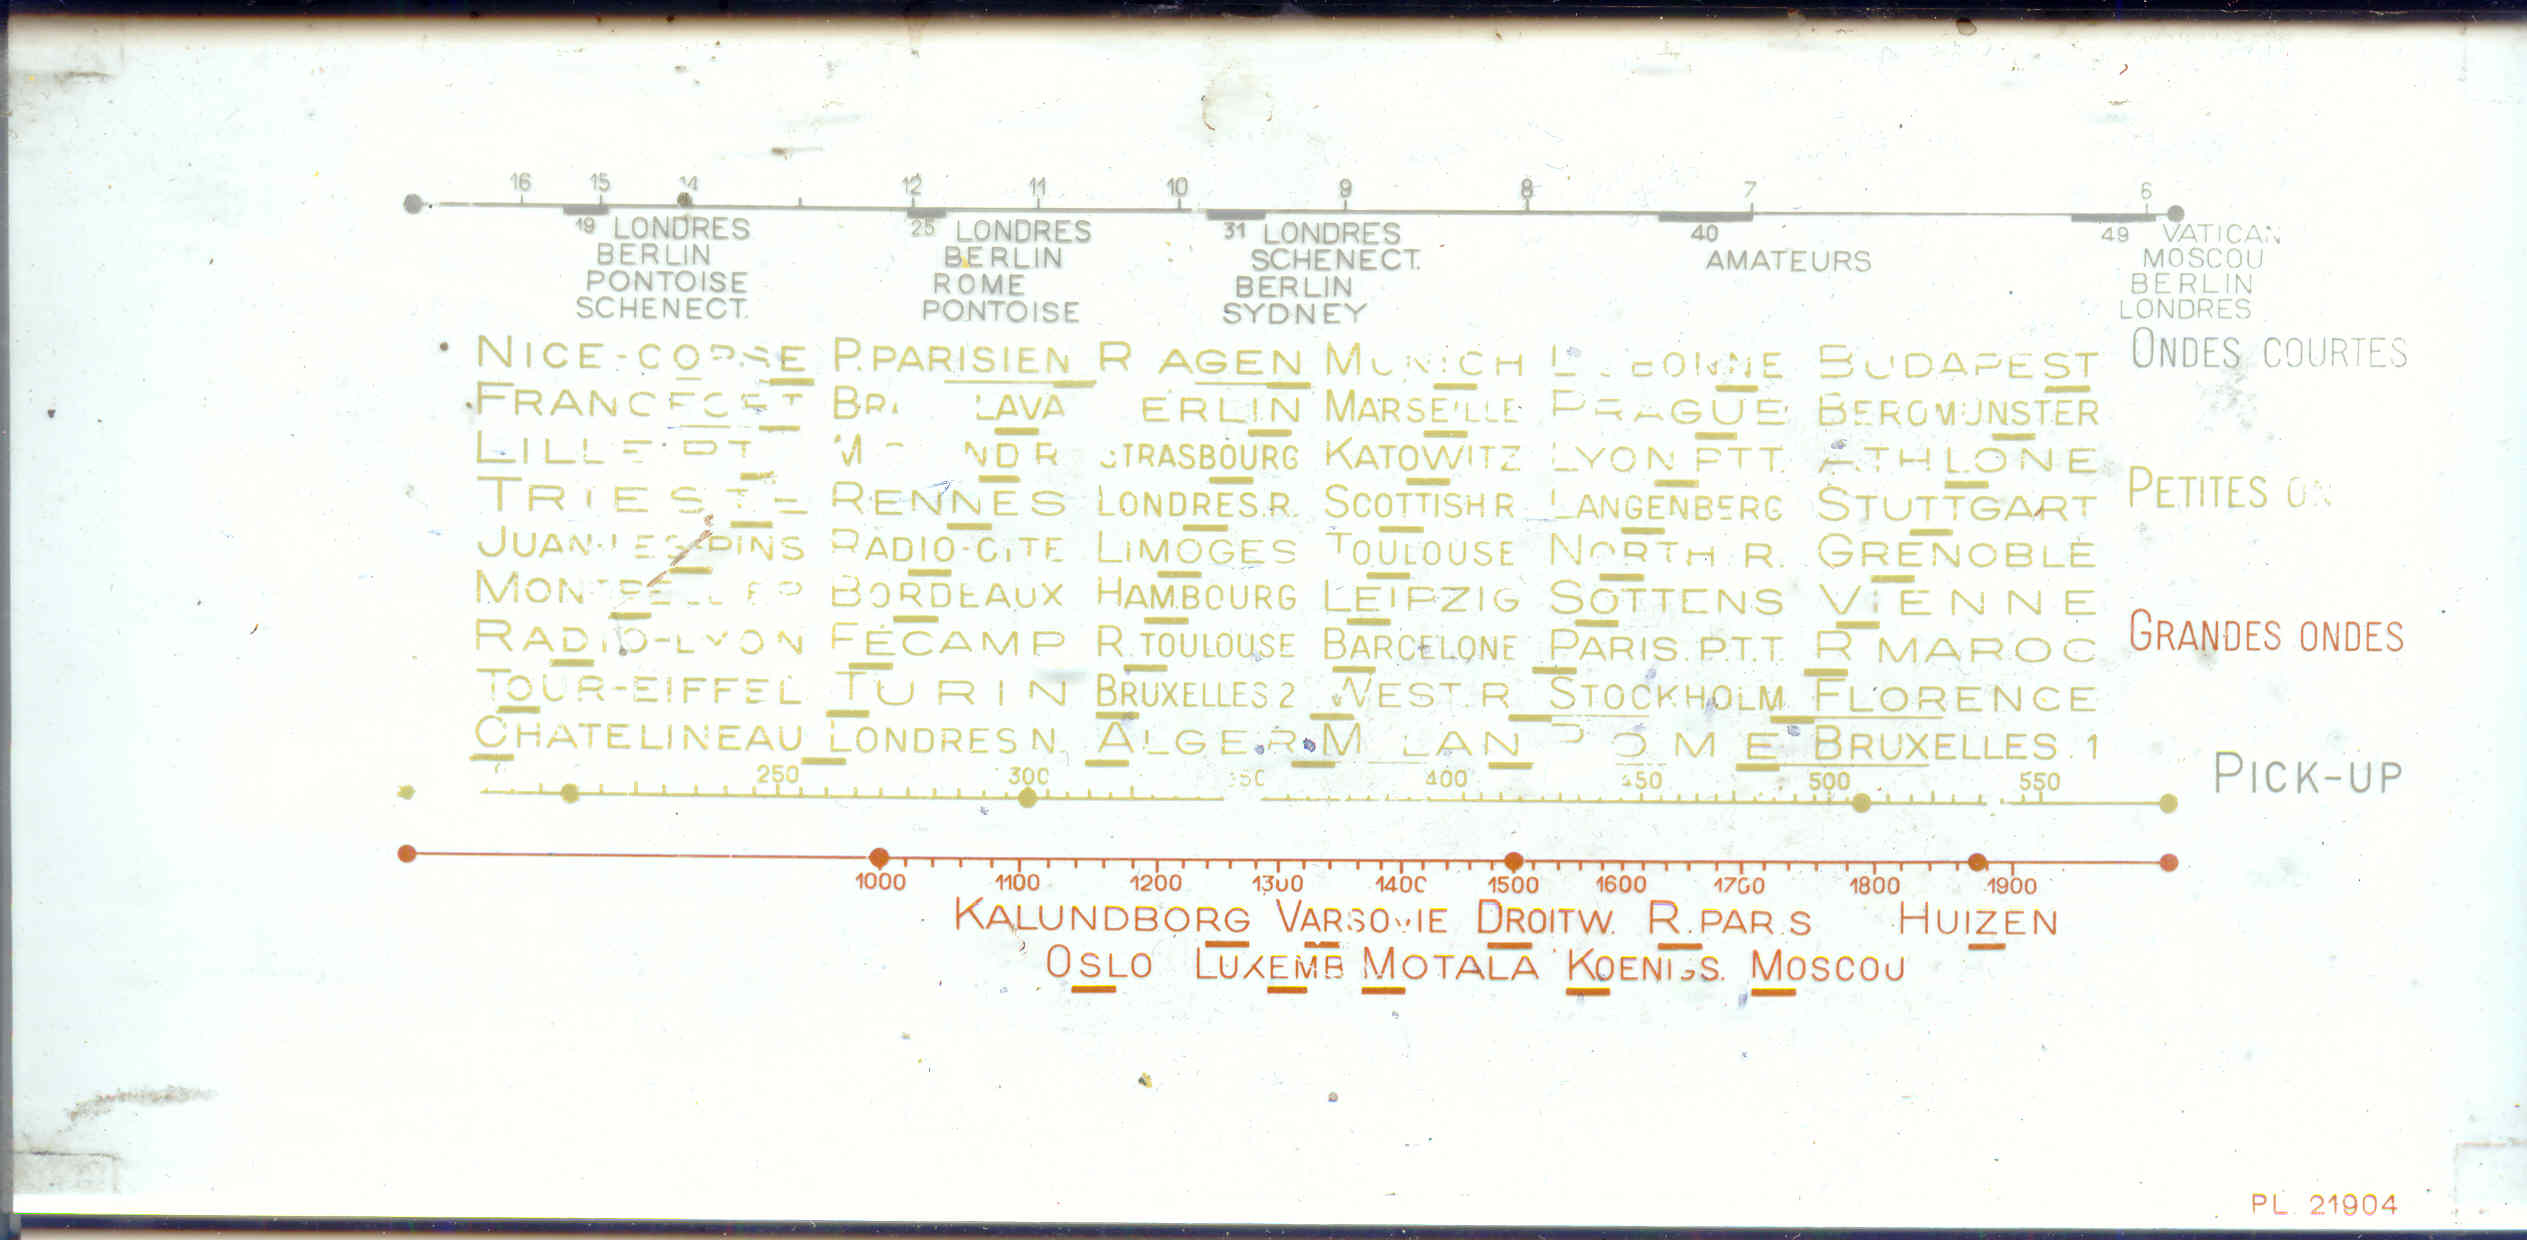 16 15 14 12 11 10 9 8 7 6
19 LONDRES 25 LONDRES 31 LONDRES 40 49 VATICAN
BERLIN BERLIN SCHENECT. AMATEURS MOSCOU
PONTOISE ROME BERLIN BERLIN
SCHENECT. PONTOISE SYDNEY LONDRES
NICE-CORSE P.PARISIEN R AGEN MUNICH BUDAPEST ONDES COURTES
FRANCFORT MARSEILLE PRAGUE BEROMUNSTER
STRASBOURG KATOWITZ LYON PTT. ATHLONE
TRIESTE RENNES LONDRES.R. SCOTTISH R LANGENBERG STUTTGART PETITES
JUAN-LES-PINS RADIO-CITE LIMOGES TOULOUSE NORTH R. GRENOBLE
MONTPELLIER BORDEAUX HAMBOURG LEIPZIG SOTTENS VIENNE
RADIO-LYON FÉCAMP R.TOULOUSE BARCELONE PARIS.P.T.T. R MAROC GRANDES ONDES
TOUR-EIFFEL TURIN BRUXELLES 2 WEST.R. STOCKHOLM FLORENCE
CHATELINEAU LONDRES N. ALGER MILAN ROME BRUXELLES.1
250 300 350 400 450 500 550 PICK-UP
1000 1100 1200 1300 1400 1500 1600 1700 1800 1900
KALUNDBORG VARSOVIE DROITW. R.PARIS HUIZEN
OSLO LUXEMB MOTALA KOENIGS. MOSCOU
PL. 21904